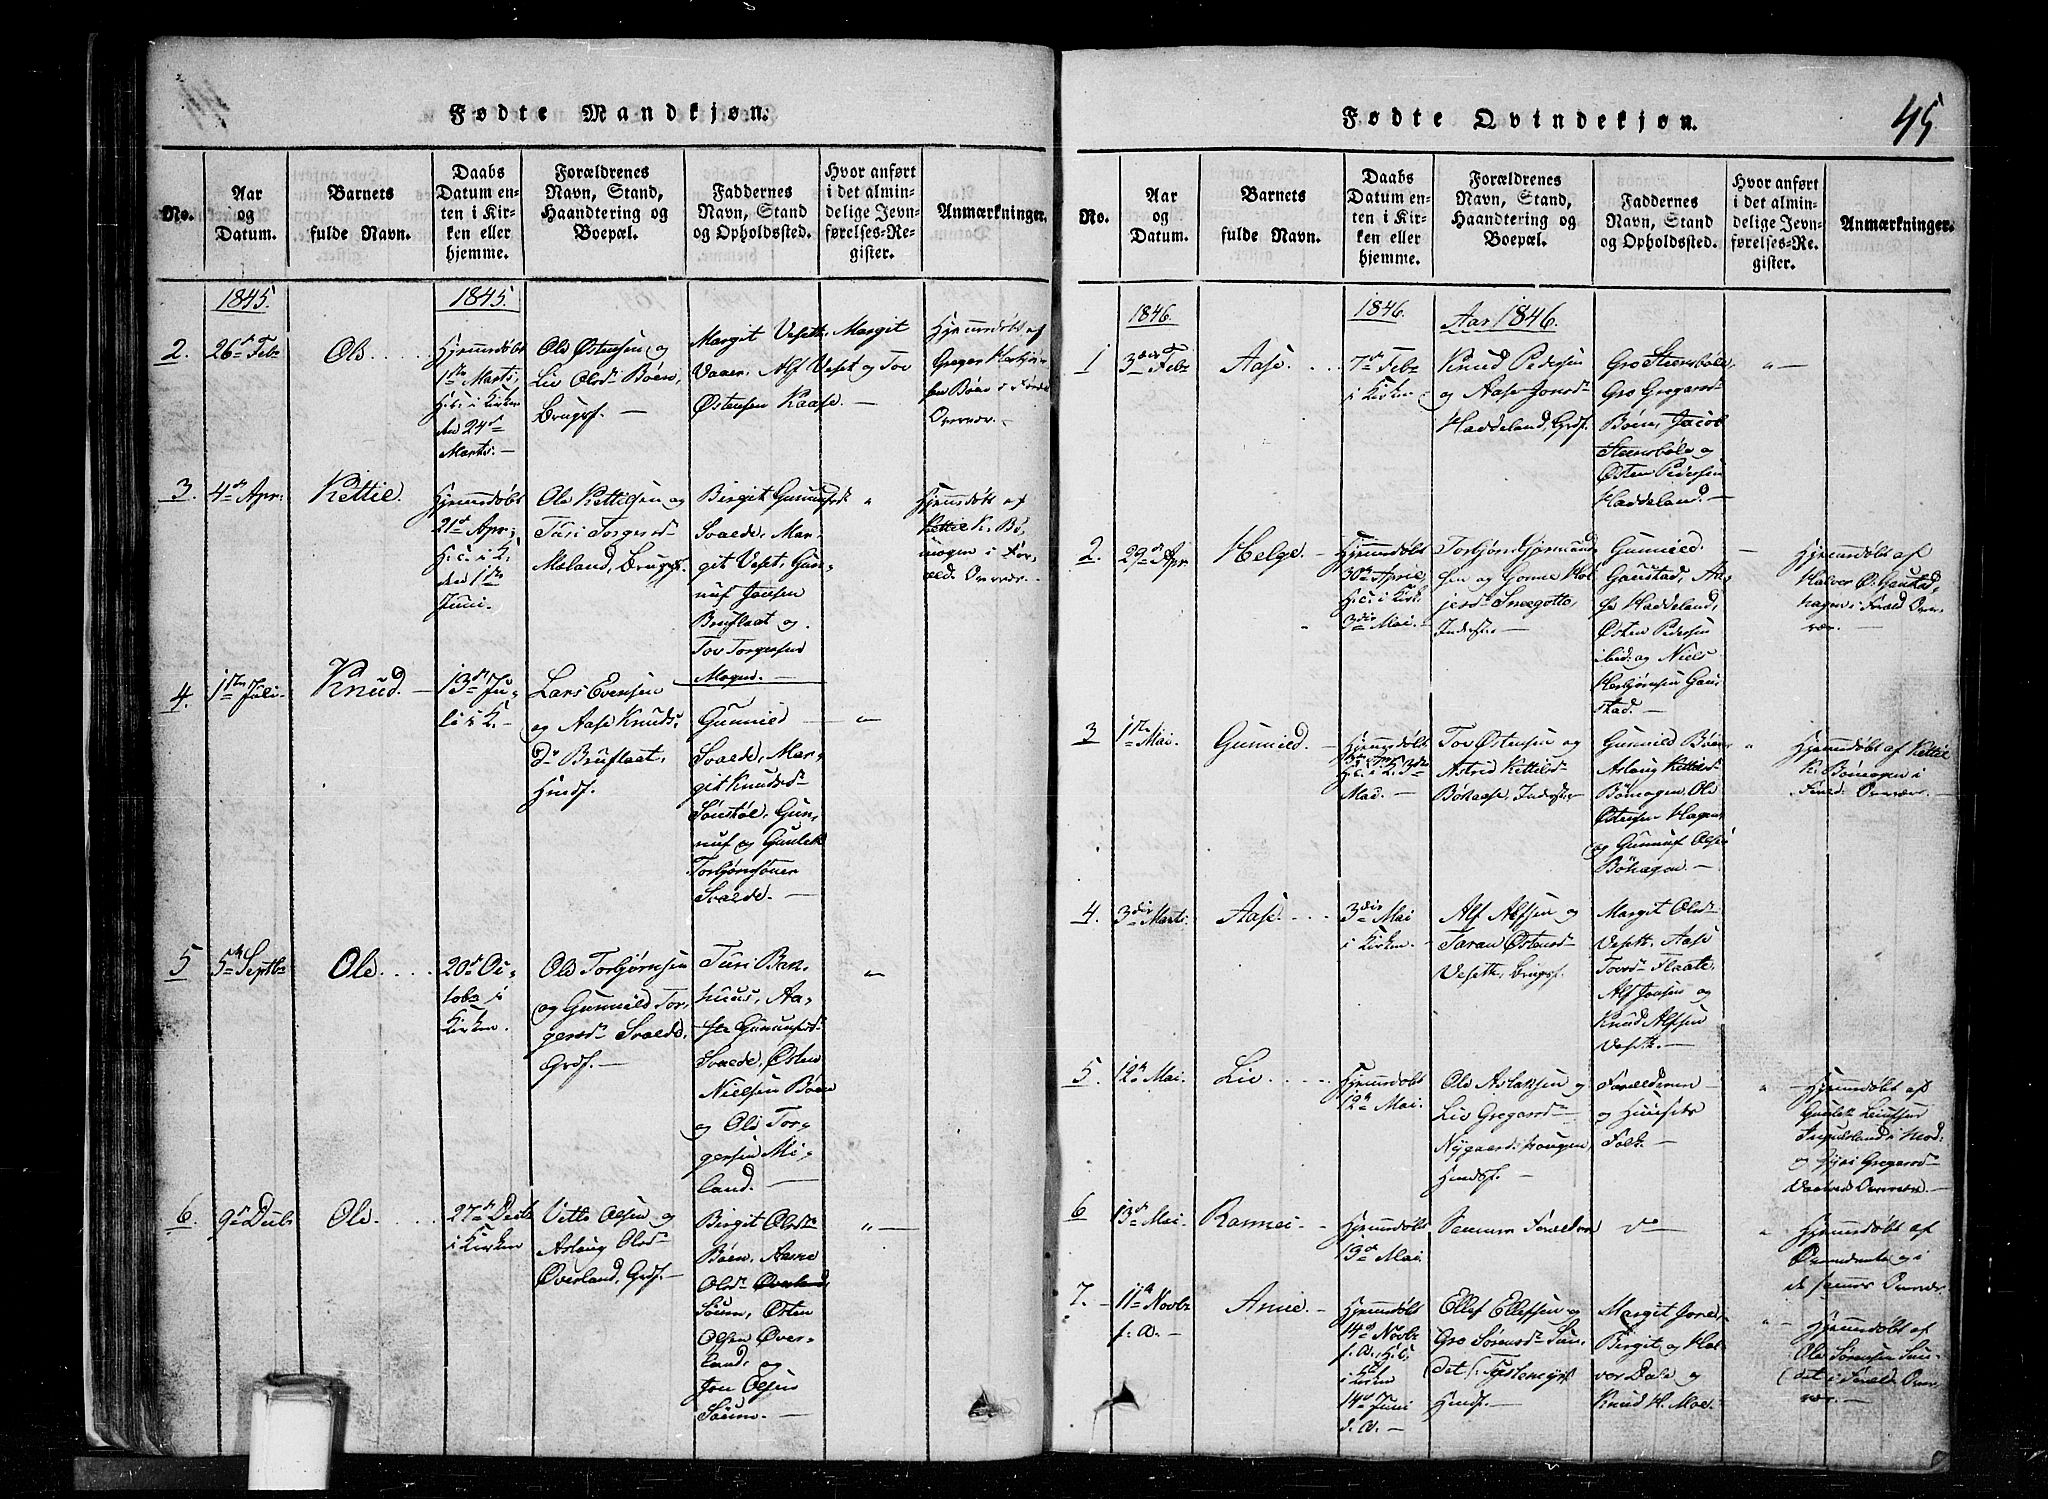 Fødte Mandkjøn.
No.
Aar
og
Datum.
Barnets
fulde Navn.
Daabs
Datum en-
ten i Kir-
ken eller
hjemme.
Forældrenes
Navn, Stand,
Haandtering og
Boepæl.
Faddernes
Navn, Stand
og Opholdssted.
Hvor anført
i det almin-
delige Jevn-
førelses-Re-
gister.
Anmærkninger.
1845.
1845.
2.
26de Feb
Ole
Hjemmedøbt
1ste Marti,
H: C: i Kirken
den 24de
Marts. —
Ole Østensen og
Liv Olsdr Bøen,
Brugsf. —
Margit Veseth, Margit
Vaaer, Alf Veset og Tov
Østensen Kaase. —
Hjemmedøbt af
Gregar
Bøen i Foræld
Overvær. —
3.
4de Apr:
Kettil.
Hjemmedøbt
21de Apr:
H: C: i K.
den 1ste
Juni. —
Ole Kettilsen og
Turi Torgersd
Moland, Brugsf. —
Birgit Gunnufsd
Svalde, Mar-
git Veset, Gun-
nuf Jansen
Bruflaat og
Tov Torgersen
Mogen. —
"
Hjemmedøbt af
Kettil K. Bø-
mogen i For-
æld. Overvær. —
4.
1ste Juli —
Knud. —
13de Ju-
li i K. —
Lars Evensen
og Aase Knuds-
dr Bruflaat,
Huusf.
Gunnild
Svalde, Mar-
git Knudsd
Sønstøl, Gun-
nuf og Gunlek
Torbjørnsønner
Svalde. —
" —
5
5te Septbr
Ole
20de Oc-
tobr i
Kirken.
Ole Torbjørnsen
og Gunnild Tor-
gersdr Svalde,
Grdf. —
Turi Bak-
huus, Aa-
se Gunnufsd
Svalde, Østen
Nielsen Bøen
og Ole Tor-
gersen Mi-
land. —
" —
6.
9de Decbr
Ole.
27de Decbr
i Kirken
Vetle Olsen og
Aslaug Olsdr
Øverland, Grdf. —
Birgit Olsdr
Bøen, Anne
Olsdr Øverland
Søum, Østen
Olsen Øver-
land, og
Jon Olsen
Søum. —
" —
Fødte Qvindekjøn.
45
No.
Aar
og
Datum.
Barnets
fulde Navn.
Daabs
Datum en-
ten i Kir-
ken eller
hjemme.
Forældrenes
Navn, Stand,
Haandtering og
Boepæl.
Faddernes
Navn, Stand
og Opholdssted.
Hvor anført
i det almin-
delige Jevn-
førelses-Re-
gister.
Anmærkninger.
1846.
1846.
Aar 1846.
1
3die Feb
Aase.
7de Feb
i Kirken —
Knud Pedersen
og Aase Jonsdr
Haddeland, Grdf.
Gro Steensbøle,
Gro Gregarsd
Bøen, Jacob
Steensbøle og
Østen Pedersen
Haddeland. —
" —
2.
29de Apr
Helge. —
Hjemmedøbt
30te April,
H: C: i Kirk.
3die Mai. —
Torbjørn Gjermund-
sen og Gonne Hol-
jersdr Snegotte,
Inderster —
Gunnild
Gaustad, Aa-
se Haddeland,
Østen Pedersen
ibid: og Niels
Herbjørnsen Gau-
stad. —
—
Hjemmedøbt af
Halvor O. Gaustad-
hagen i Foræld Over-
vær. —
3
1ste Mai.
Gunnild. —
Hjemmedøbt
H: C: i K. 3die
Mai. —
Tov Østensen og
Astrid Kettilsd
Bøkaase, Inderster
Gunnild Bøen,
Aslaug Kettilsd
Bømogen, Ole
Østensen Hagen,
og Gunnuf Olsen
Bøhagen. —
"
Hjemmedøbt af Kettil
K. Bømogen i
Foræld. Overvær. —
4.
3die Marti.
Aase.
3die Mai
i Kirken —
Alf Alfsen og
Taran Østensd
Veseth, Brugsf.
Margit Olsdr
Veseth, Aase
Tovsdr Flaate,
Alf Jonsen og
Knud Alfsen
Veseth. —
5.
12te Mai.
Liv.
Hjemmedøbt
12te Mai.
Ole Aslaksen og
Liv Gregarsdr
Nygaard i haugen,
Huusf. —
Forældrene
og Huusets
Folk. —
"
— Hjemmedøbt af
Gunlek
Ingulsland i Mod:
og Gregarsdr
Overvær. —
6
13de Mai
Rannei. —
Hjemmedøbt
13de Mai
Samme Forældre
do —
"
Hjemmedøbt af
og i
de sammes Overvær
7. —
11te Novbr
f: A. —
Anne. —
Hjemmedøbt
14de Novbr
f. A., H. C.
i Kirken
14de Juni
d. A. —
Ellef Ellefsen og
Gro Sørensdr Sun-
det /: Tveitemyr
Huusf. —
Margit Jore,
Birgit og Hal-
vor Dale og
Knud H. Moe.
" —
Hjemmedøbt af
Ole Sørensen Sun-
det i Foræld: Over-
vær. —